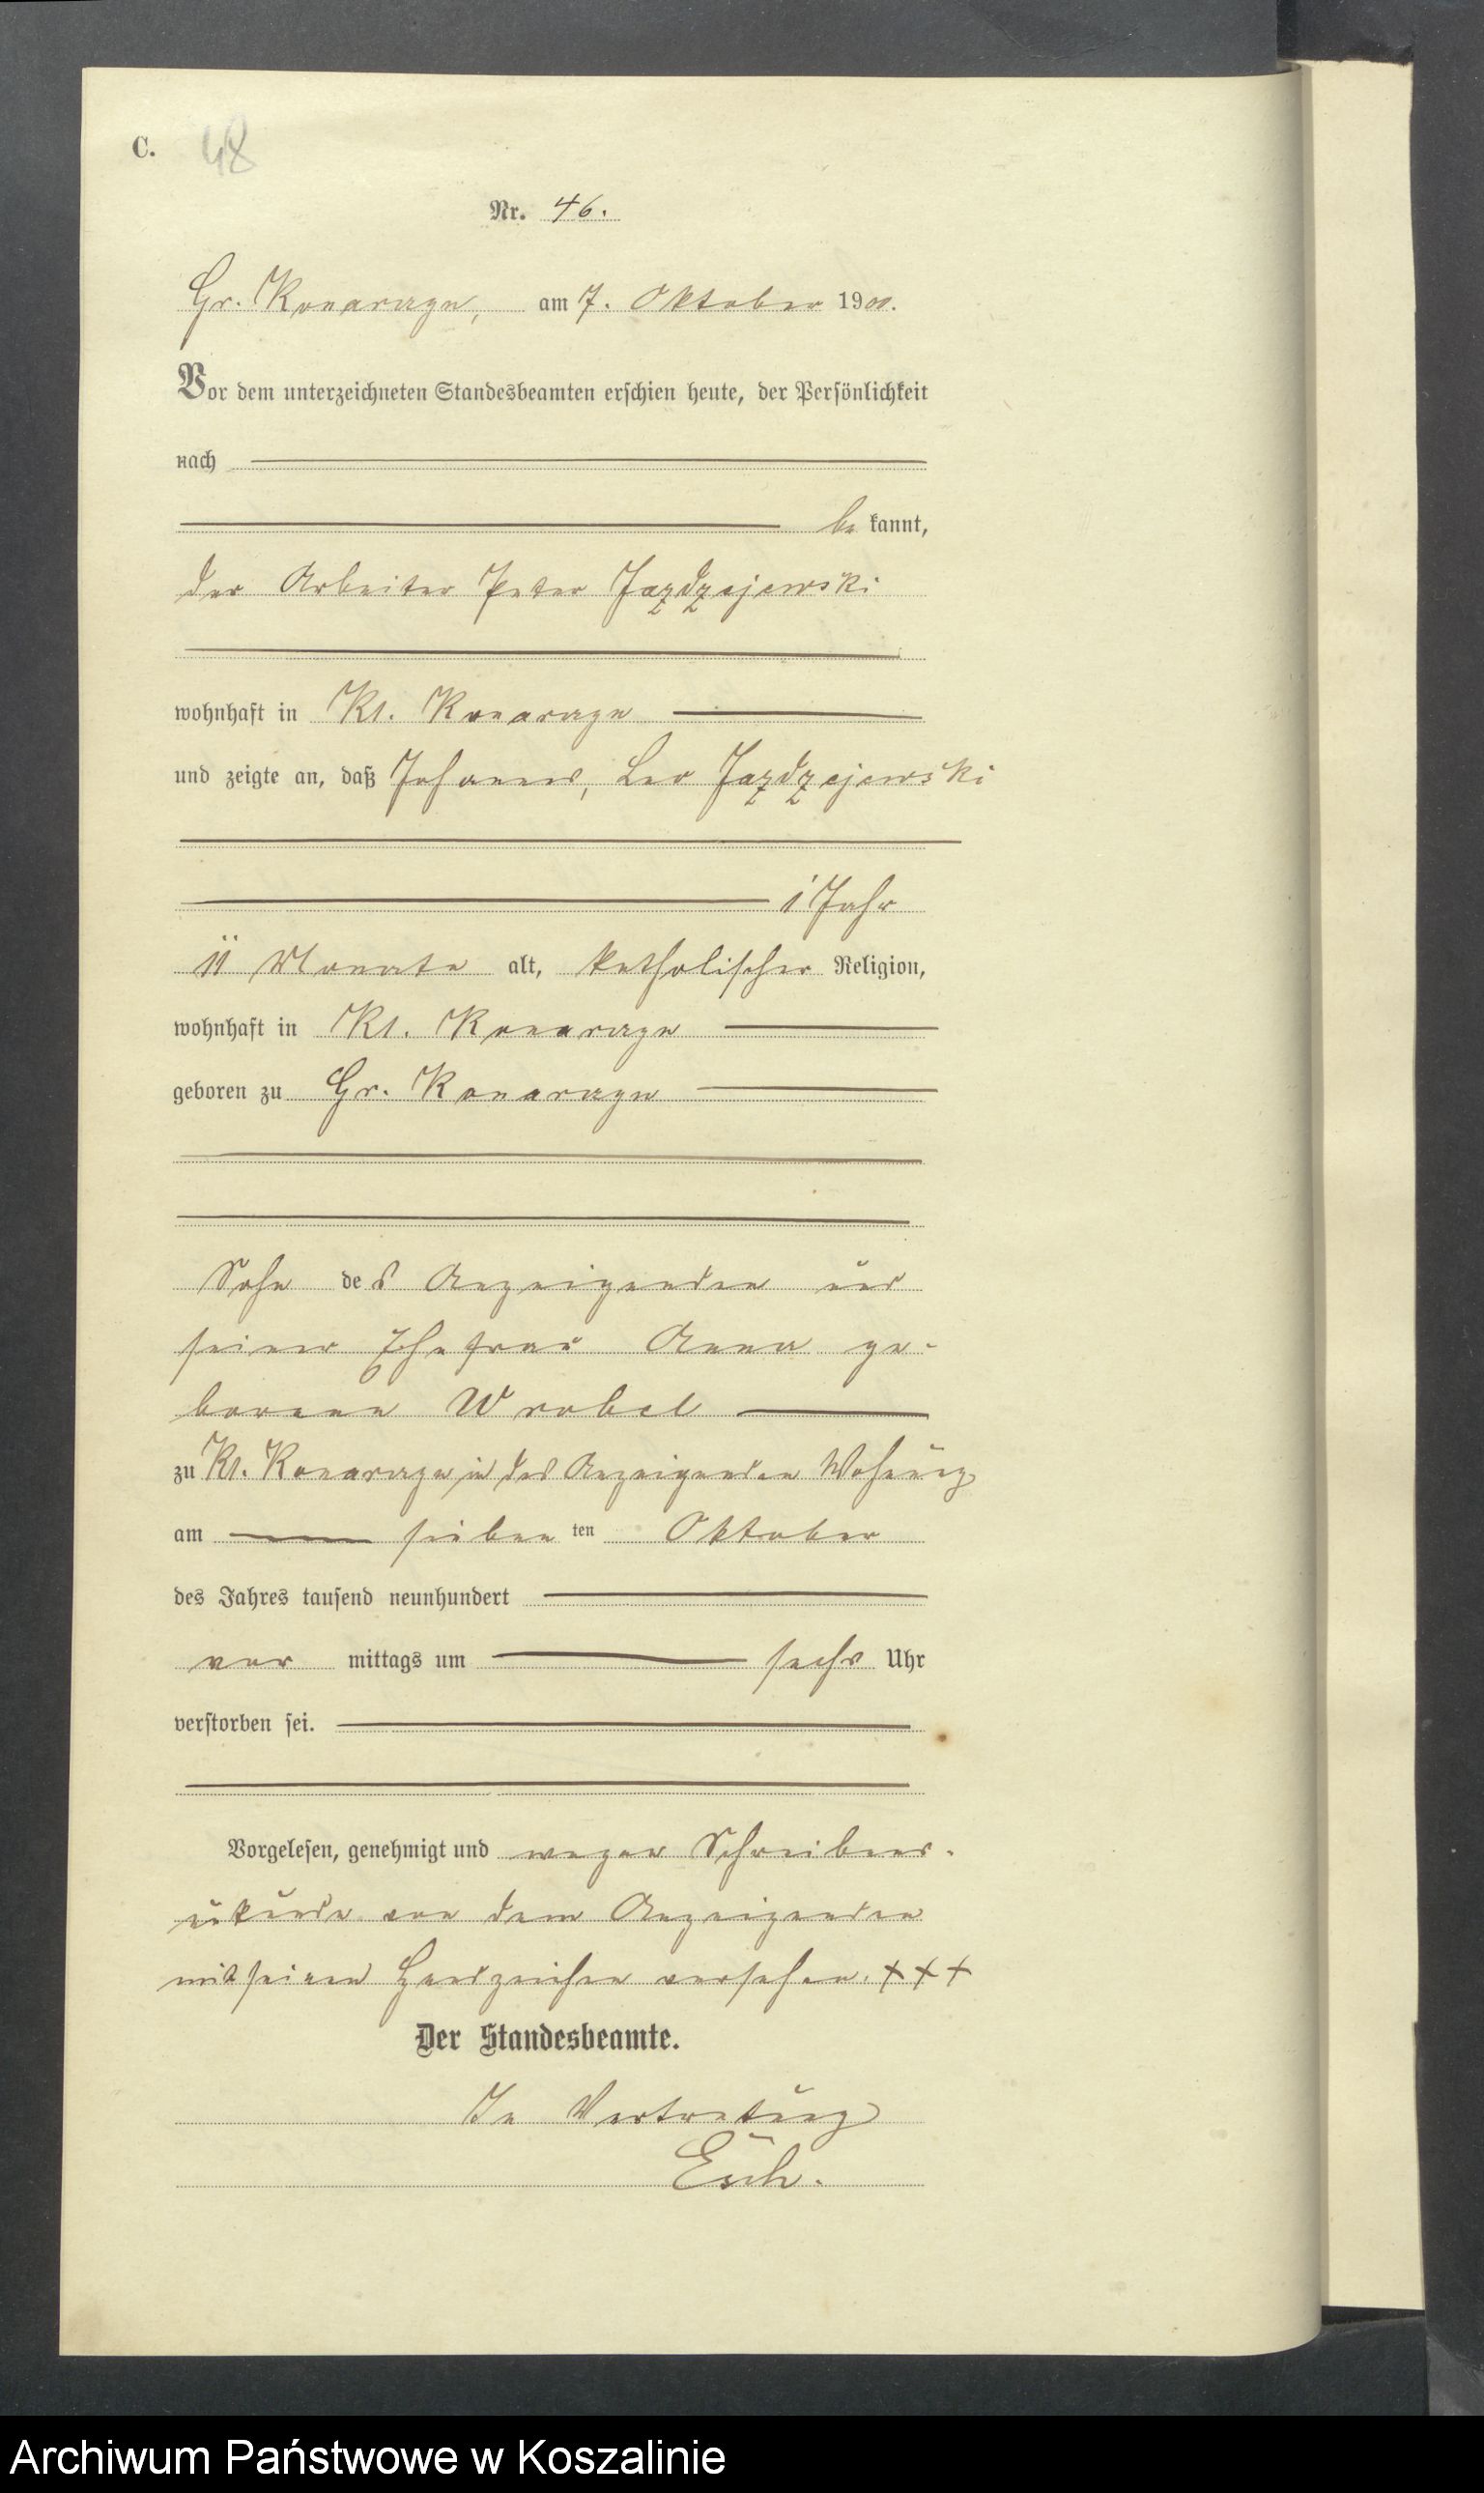 C. 48
Nr. 46.
Gr. Konarzyn, am 7. Oktober 1900.
Vor dem unterzeichneten Standesbeamten erschien heute, der Persönlichkeit
nach
be kannt,
der Arbeiter Peter Jazdzejewski
wohnhaft in Kl. Konarzyn
und zeigte an, daß Johannes, Leo Jazdzejewski
1 Jahr
11 Monate alt, katholischer Religion,
wohnhaft in Kl. Konarzyn
geboren zu Gr. Konarzyn
Sohn des Anzeigenden und
seiner Ehefrau Anna ge-
borenen Wrobel
zu Kl. Konarzyn in des Anzeigenden Wohnung
am sieben ten Oktober
des Jahres tausend neunhundert
vor mittags um sechs Uhr
verstorben sei.
Vorgelesen, genehmigt und wegen Schreibens-
unkunde von dem Anzeigenden
mit seinen Handzeichen versehen. +++
Der Standesbeamte.
In Vertretung
Esch.
Archiwum Państwowe w Koszalinie